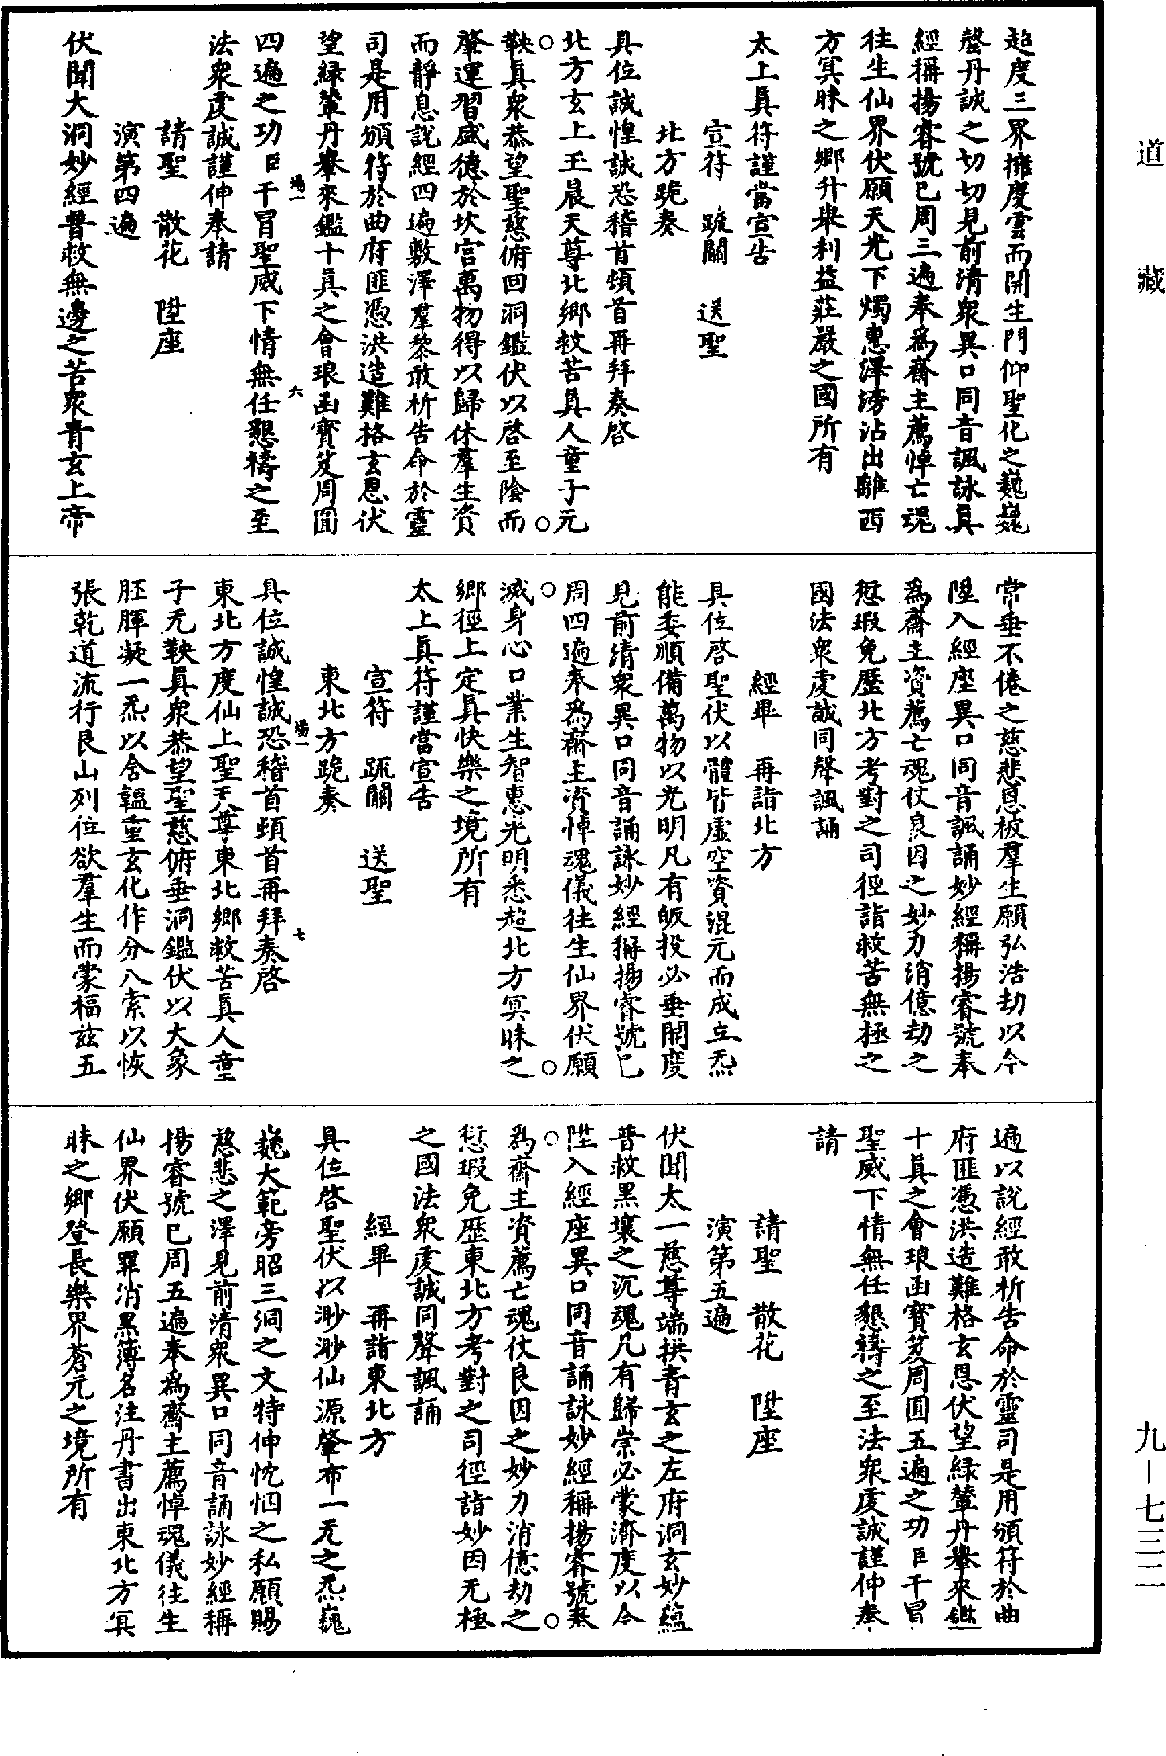 道藏
超度三界擁慶雲而開生門仰聖化之巍巍
罄丹誠之切切見前清衆異口同音諷詠眞
經稱揚睿號已周三遍奉爲齋主薦悼亡魂
往生仙界伏願天光下燭惠澤滂沾出離西
方冥昧之鄉升舉利益莊嚴之國所有
太上眞符謹當宣告
宣符　疏關　送聖
北方跪奏
具位誠惶誠恐稽首頓首再拜奏啓
北方玄上玉晨天尊北鄉救苦眞人童子元
鞅眞衆恭望聖慈俯回洞鑑伏以啓至陰而
肇運習盛德於坎宮萬物得以歸休羣生資
而靜息說經四遍敷澤羣黎敢析告命於靈
司是用頒符於曲府匪憑洪造難格玄恩伏
望緑輦丹轝來鑑十眞之會琅函寶笈周圓
四遍之功臣干冒聖威下情無任懇禱之至
法衆虔誠謹伸奉請
請聖　散花　陞座
演第四遍
伏聞大洞妙經普救無邊之苦衆青玄上帝
常垂不倦之慈悲恩被羣生願弘浩劫以今
陞入經座異口同音諷誦妙經稱揚睿號奉
爲齋主資薦亡魂仗良因之妙力消億劫之
愆瑕免歷北方考對之司徑詣救苦無極之
國法衆虔誠同聲諷誦
經畢　再詣北方
具位啓聖伏以體皆虛空資混元而成立炁
能委順備萬物以光明凡有皈投必垂開度
見前清衆異口同音誦詠妙經稱揚睿號已
周四遍奉爲齋主資悼魂儀往生仙界伏願
滅身心口業生智惠光明悉超北方冥昧之
鄉徑上定眞快樂之境所有
太上眞符謹當宣告
宣符　疏關　送聖
東北方跪奏
具位誠惶誠恐稽首頓首再拜奏啓
東北方度仙上聖天尊東北鄉救苦眞人童
子无鞅眞衆恭望聖慈俯垂洞鑑伏以大象
胚腪凝一炁以含韞重玄化作分八索以恢
張乾道流行艮山列位欲羣生而蒙福茲五
遍以說經敢析告命於靈司是用頒符於曲
府匪憑洪造難格玄恩伏望緑輦丹轝來鑑
十眞之會琅函寶笈周圓五遍之功臣干冒
聖威下情無任懇禱之至法衆虔誠謹伸奉
請
請聖　散花　陞座
演第五遍
伏聞太一慈尊端拱青玄之左府洞玄妙蘊
普救黑壤之沉魂凡有歸崇必蒙濟度以今
陞入經座異口同音誦詠妙經稱揚睿號奉
爲齋主資薦亡魂仗良因之妙力消億劫之
愆瑕免歷東北方考對之司徑詣妙因无極
之國法衆虔誠同聲諷誦
經畢　再詣東北方
具位啓聖伏以渺渺仙源肇布一元之炁巍
巍大範旁昭三洞之文特伸忱悃之私願賜
慈悲之澤見前清衆異口同音誦詠妙經稱
揚睿號已周五遍奉爲齋主薦悼魂儀往生
仙界伏願罪消黑簿名注丹書出東北方冥
昧之鄉登長樂界蒼元之境所有
九—七三二